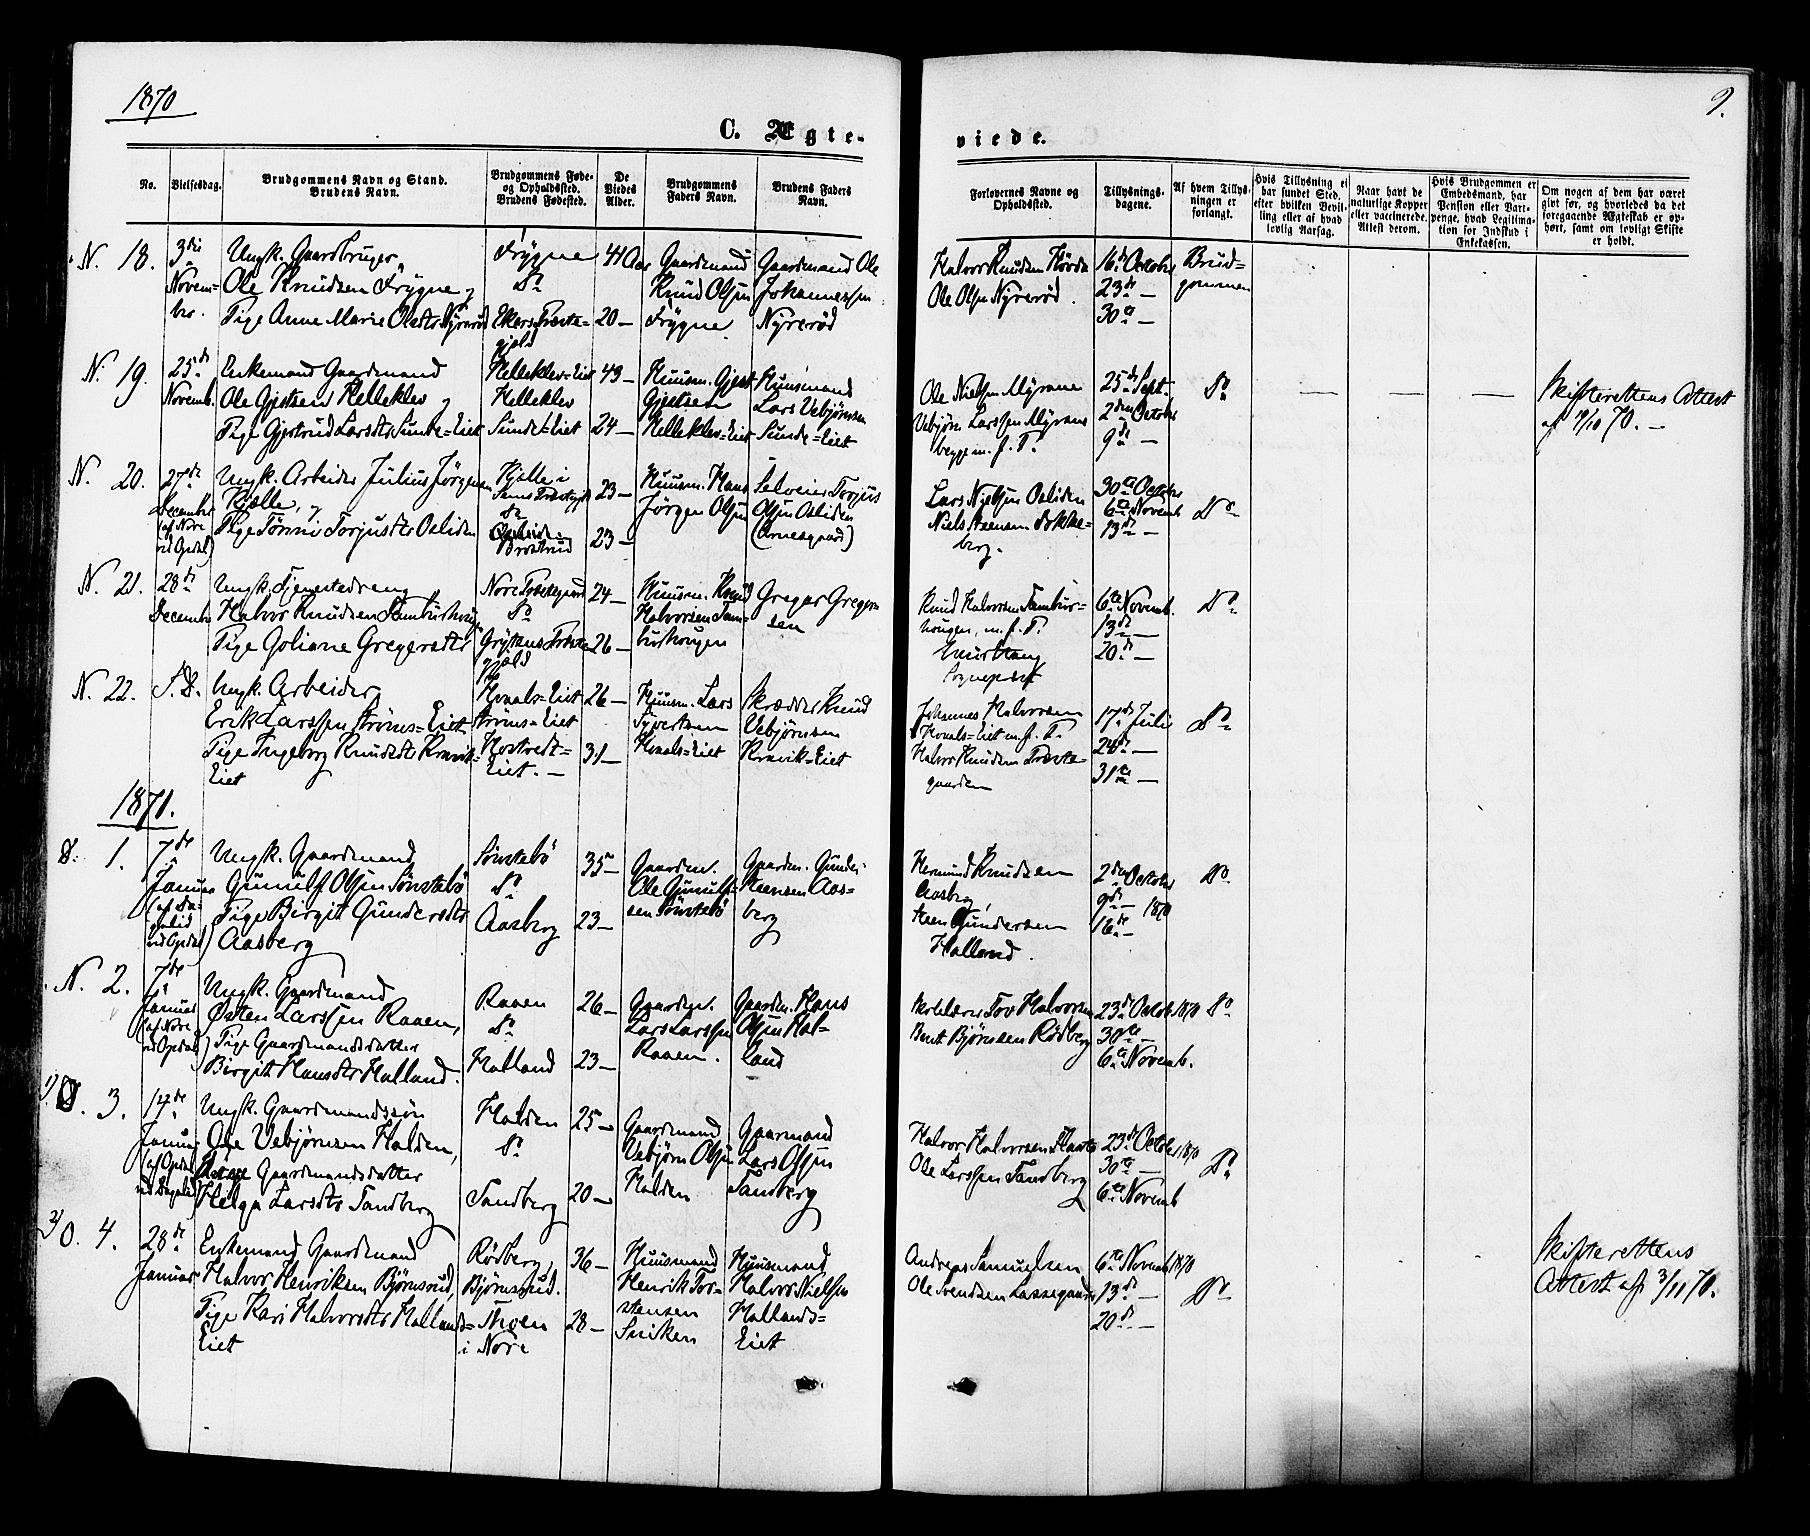 1870
9.
C. Ægte-
viede.
No.
Vielsesdag.
Brudgommens Navn og Stand.
Brudens Navn.
Brudgommens Føde-
og Opholdssted.
Brudens Fødested.
De
Viedes
Alder.
Brudgommens
Faders Navn.
Brudens Faders
Navn.
Forlovernes Navne og
Opholdssted.
Tillysnings-
dagene.
Af hvem Tillys-
ningen er
forlangt.
Hvis Tillysning ei
har fundet Sted,
efter hvilken Bevil-
ling eller af hvad
lovlig Aarsag.
Naar havt de
naturlige Kopper
eller vaccinerede.
Attest derom.
Hvis Brudgommen er
Embedsmand, har
Pension eller Vart-
penge, hvad Legitima-
tion for Indskud i
Enkekassen.
Om nogen af dem har været
gift før, og hvorledes da det
foregaaende Ægteskab er op-
hørt, samt om lovligt Skifte
er holdt.
N. 18.
3die
Novem-
br.
Ungk. Gaardbruger
Ole Knudsen Frygne og
Pige Anne Marie Olsdtr Nyrerød
Frygne
Do
Ekers Præste-
gjeld
41 Aar
20 —
Gaardmand
Knud Olsen
Frygne
Gaardmand Ole
Johannessen
Nyrerød
Halvor Knudsen Hövda
Ole Olsen Nyrerød.
16de Octobr
23de —
30te —
Brud-
gommen
N. 19.
25de
Novemb.
Enkemand Gaardmand
Ole Gjestsen Kelleklev og
Pige Gjertrud Larsdtr Sunde-Eiet
Kelleklev-Eiet
Kelleklev
Sunde-Eiet
49 —
24 —
Huusm. Gjest
Gjestsen
Kelleklev-Eiet
Huusmand
Lars Vebjørnsen
Sunde-Eiet
Ole Nielsen Myrane
Vebjørn Larssen Myrane
begge m. f. T.
25de Sept.
2den Octobr
9de —
Do
Skifterettens Attest
af 7/10 70. —
N. 20.
27de
December
(af Nore
ved Opdal)
Ungk. Arbeider Julius Jörgensen
Kjælle, og
Pige Tönne Torjusdtr Osliden
Kjelle i
Do
Brostrud
23 —
23 —
Huusm. Hans
Jörgen Olsen
Selveier Torjus
Olsen Osliden
(Arnesgaard)
Lars Nielsen Osliden
Niels Steensen Bakke-
berg.
30te Octobr
6te Novemb
13de —
Do
N. 21.
28de
Decembr
Ungk. Tjenestedreng
Halvor Knudsen Tamburhougen
Pige Goliane Gregersdtr
Nore Præstegjeld
Do
Grytens Præste-
gjeld
24 —
26 —
Huusm. Knud
Halvorsen Tam-
burhougen
Gregar Greger-
sen
Knud Halvorsen Tambur-
hougen, m. f. T.
Sogneprest
6te Novemb.
13de —
20de —
Do
N. 22.
S. D.
Ungk. Arbeider
Erik Larssen Ströms-Eiet
Pige Ingeborg Knudsdtr Kravik-
Eiet
Hvaals-Eiet
Ströms-Eiet
Hostvedt-
Eiet. —
26 —
31 —
Huusm. Lars
Syvertsen
Hvaals-Eiet
Skrædder Knud
Vebjørnsen
Kravik-Eiet
Johannes Halvorsen
Hvaals-Eiet m. f. T.
Halvor Knudsen Præste-
gaarden
17de Juli
24de —
31te —
Do
1871.
D. 1.
7de
Januar
(af Da-
galid
ved Opdal)
Ungk. Gaardmand
Gunnulf Olsen Sönstebö
Pige Birgit Gundersdtr
Aasberg
Sönstebö
Do
Aasberg
35 —
23 —
Gaardm.
Ole Gunnulf-
sen Sönstebö
Gaardm. Gunder
Steensen Aas-
berg
Hermund Knudsen
Aasberg,
Steen Gundersen
Halland.
2den Octobr
9de — 1870
16de —
Do.
N. 2.
7de
Januar
(af Nore
ved Opdal)
Ungk. Gaardmand
Østen Larssen Raaen,
Pige Gaardmandsdatter
Birgit Hansdtr Halland.
Raaen
Do
Halland
26 —
23 —
Gaardm.
Lars Larssen
Raaen.
Gaardm. Hans
Olsen Hal-
land
Skolelærer Tov Halvorsen
Bent Bjørnsen Rödberg
23de Octob 1870
30te —
6te Novemb.
Do
O. 3.
14de
Januar
(af Opdal
ved Dagalid)
Ungk. Gaardmandssön
Ole Vebjørnsen Halden,
Gaardmandsdatter
Helga Larsdtr Sandberg
Halden
Do
Sandberg
25 —
20 —
Gaardmand
Vebjørn Olsen
Halden
Gaarmand
Lars Olsen
Sandberg
Halvor Halvorsen
Ole Larssen Sandberg
23de Octob 1870
30te —
6te Novemb
Do
O. 4.
28de
Januar
Enkemand Gaardmand
Halvor Henriksen Björnsrud,
Pige Kari Halvorsdtr Hallands-
Eiet
Rödberg,
Björnsrud.
Skoen
i Nore
36 —
28 —
Huusmand
Henrik Tor-
stensen
Sniken
Huusmand
Halvor Nielsen
Hallands-
Eiet
Andreas Samuelsen
Ole Svendsen Lassegaard
6te Novemb 1870
13de —
20de —
Do
Skifterettens
Attest af 3/11 70.